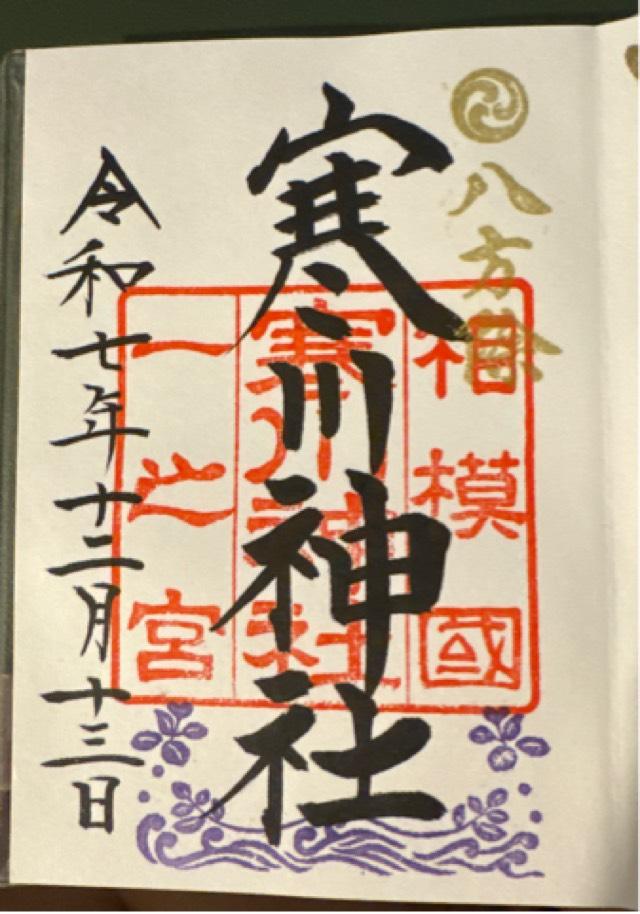 八方除
相模國
寒川神社
寒川神社
一之宮
令和七年十二月十三日